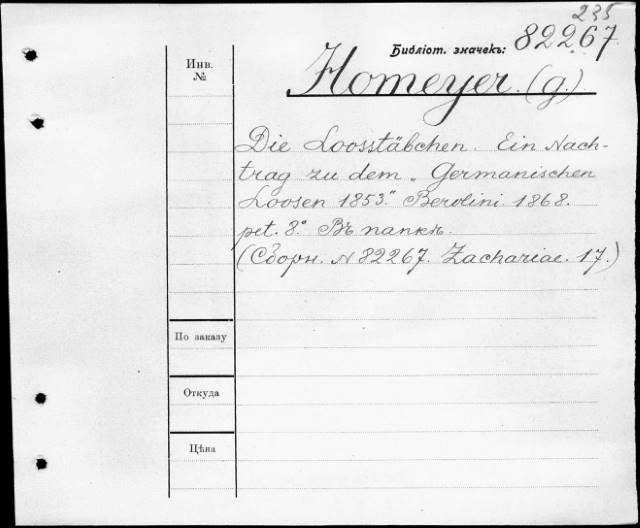 235
Библіот. значекъ: 82267
Инв. №
Homeyer. (g.)
Die Loosstäbchen. Ein Nach-
trag zu dem „Germanischen
Loosen 1853." Berolini 1868.
pet. 8.° Въ папкѣ.
(Сборн. N 82267. Zachariae. 17.)
По заказу
Откуда
Цѣна